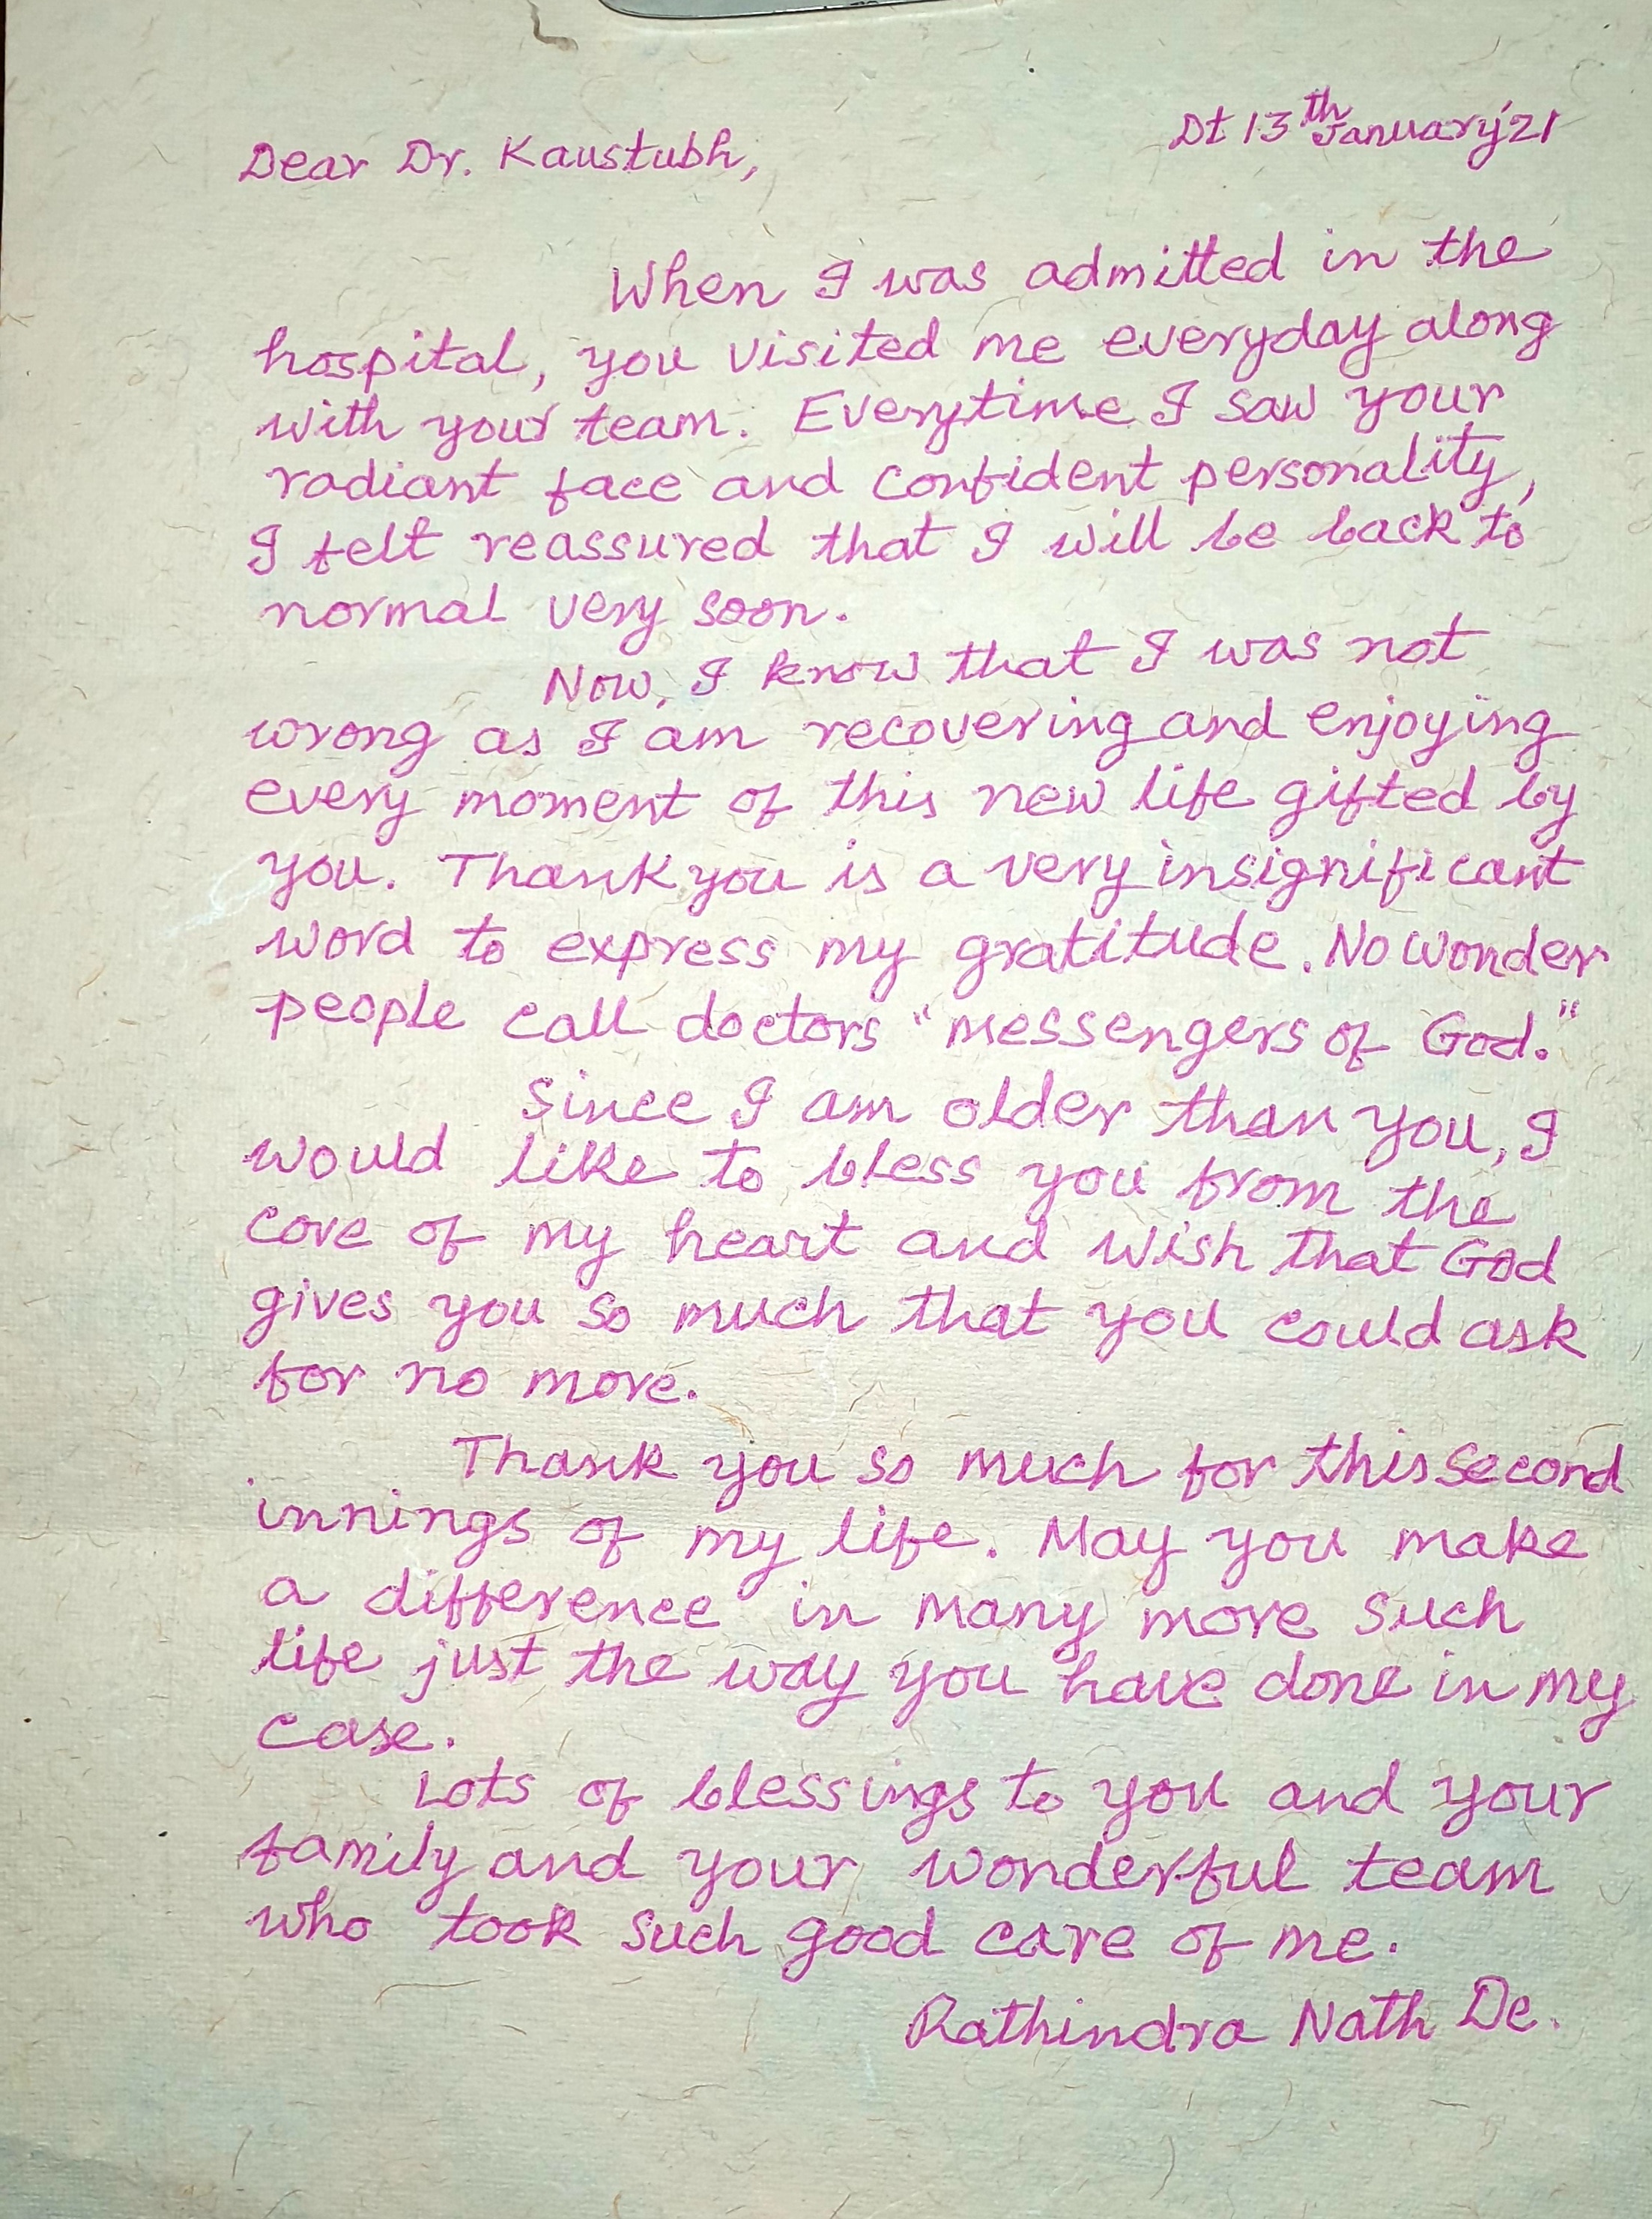 Dt 13th January'21
Dear Dr. Kaustubh,
When I was admitted in the
hospital, you visited me everyday along
with your team. Everytime I saw your
radiant face and confident personality,
I felt reassured that I will be back to
normal very soon.
Now, I know that I was not
wrong as I am recovering and enjoying
every moment of this new life gifted by
you. Thank you is a very insignificant
word to express my gratitude. No wonder
people call doctors "messengers of God."
Since I am older than you, I
would like to bless you from the
core of my heart and wish that God
gives you so much that you could ask
for no more.
Thank you so much for this second
innings of my life. May you make
a difference in many more such
life just the way you have done in my
case.
Lots of blessings to you and your
family and your wonderful team
who took such good care of me.
Rathindra Nath De.